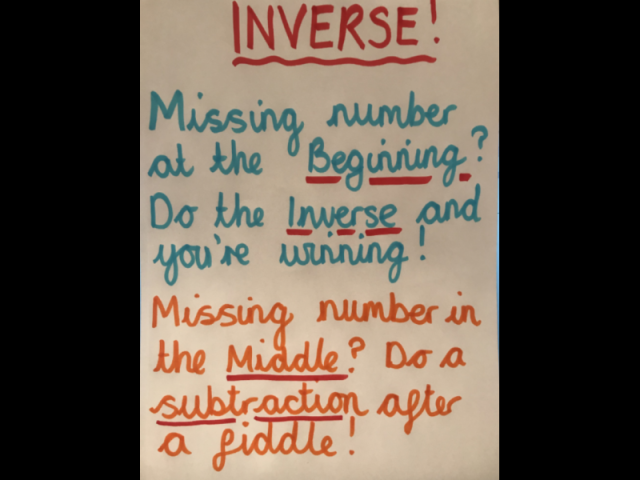 INVERSE!
Missing number
at the Beginning?
Do the Inverse and
you're winning!
Missing number in
the Middle? Do a
subtraction after
a fiddle!